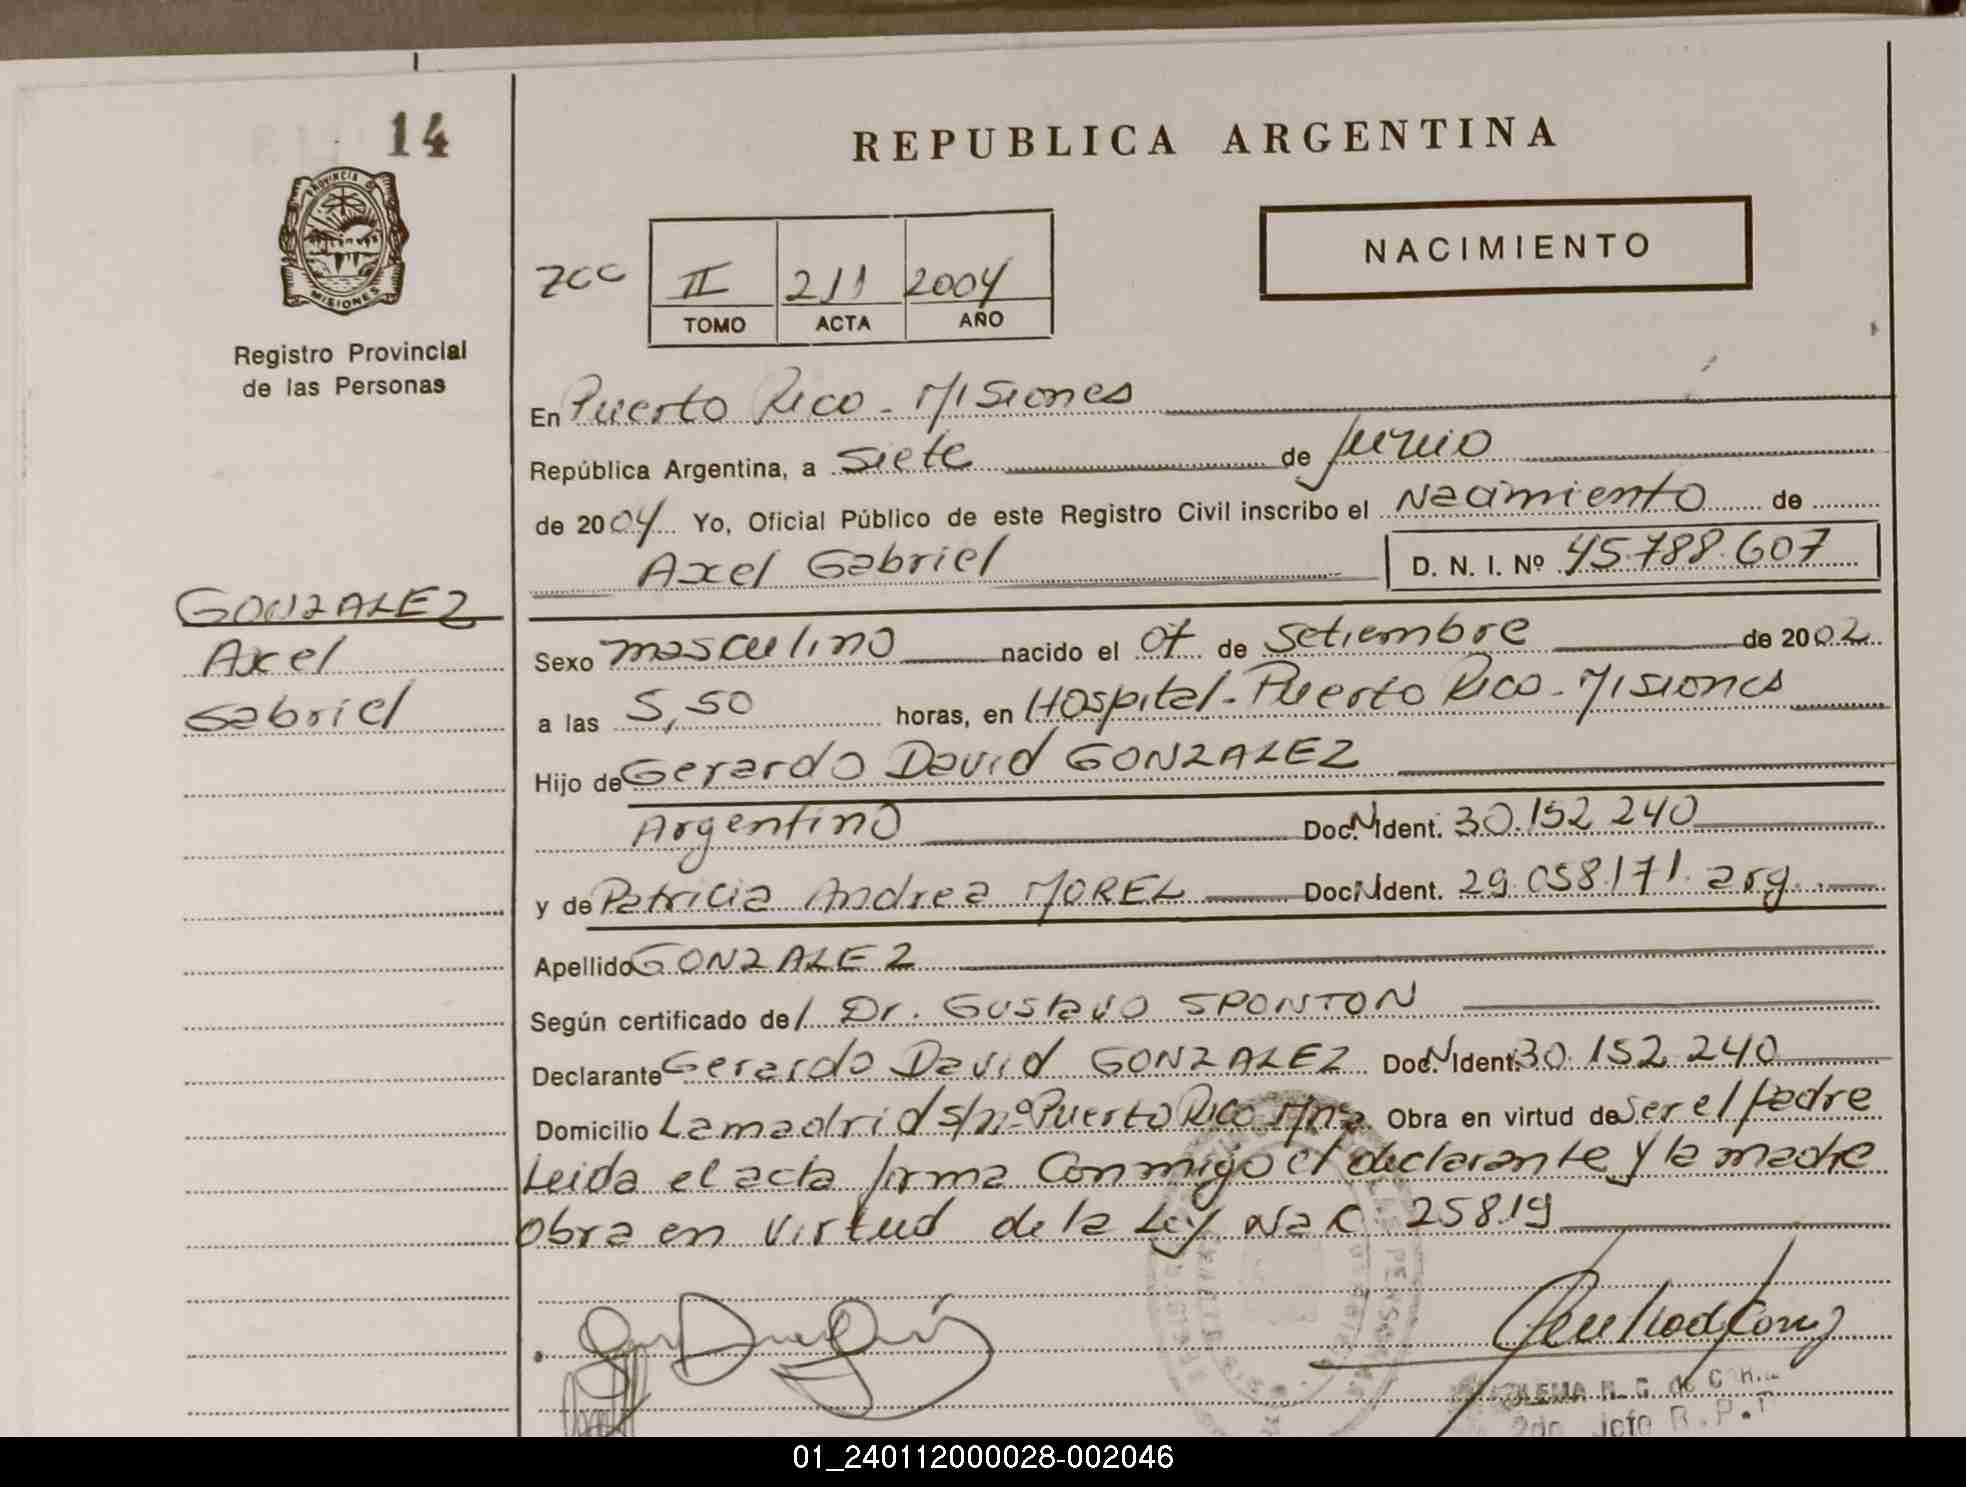 14
REPUBLICA ARGENTINA
PROVINCIA DE
MISIONES
Registro Provincial
de las Personas
7CC
II 211 2004
TOMO ACTA AÑO
NACIMIENTO
En Puerto Rico - Misiones
República Argentina, a siete de junio
de 2004 Yo, Oficial Público de este Registro Civil inscribo el Nacimiento de
Axel Gabriel D. N. I. Nº 45.788.607
GONZALEZ
Axel
Gabriel
Sexo masculino nacido el 07 de Setiembre de 2002
a las 5,50 horas, en Hospital - Puerto Rico - Misiones
Hijo de Gerardo David GONZALEZ
Argentino Doc. N Ident. 30.152.240
y de Patricia Andrea MOREL Doc. N Ident. 29.058.171. arg.
Apellido GONZALEZ
Según certificado del Dr. Gustavo SPONTON
Declarante Gerardo David GONZALEZ Doc. N Ident. 30.152.240
Domicilio Lamadrid s/nº Puerto Rico Mnes. Obra en virtud de ser el padre
Leida el acta firma conmigo el declarante y la madre
obra en virtud de la Ley Nac. 25819
2do. Jefe R.P.
01_240112000028-002046